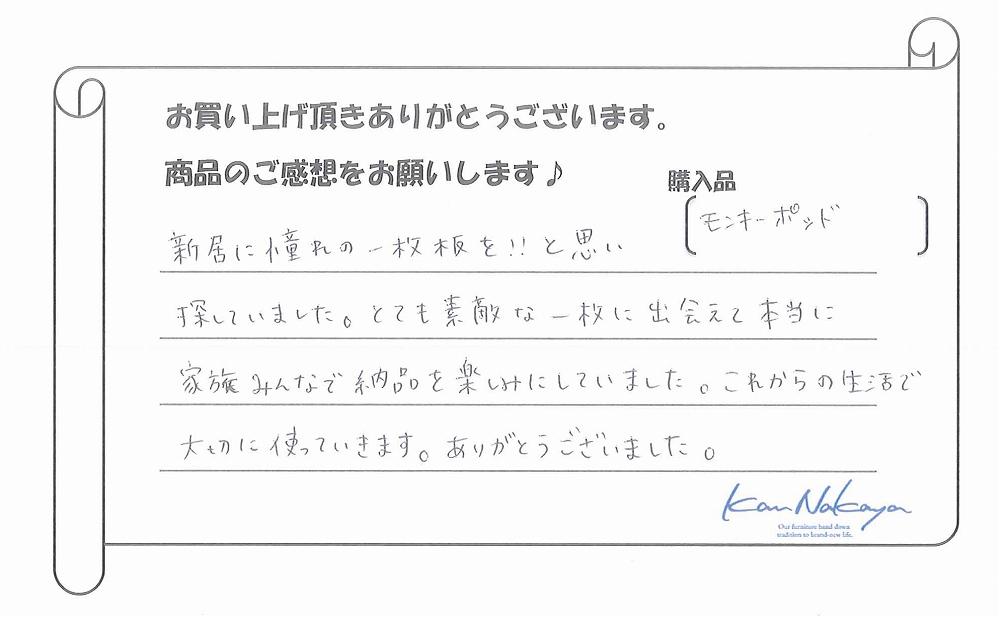 お買い上げ頂きありがとうございます。
商品のご感想をお願いします♪
購入品
モンキーポッド
新居に憧れの一枚板を!!と思い
探していました。とても素敵な一枚に出会えて本当に
家族みんなで納品を楽しみにしていました。これからの生活で
大切に使っていきます。ありがとうございました。
Kan Nakaya
Our furniture hand down
tradition to brand-new life.